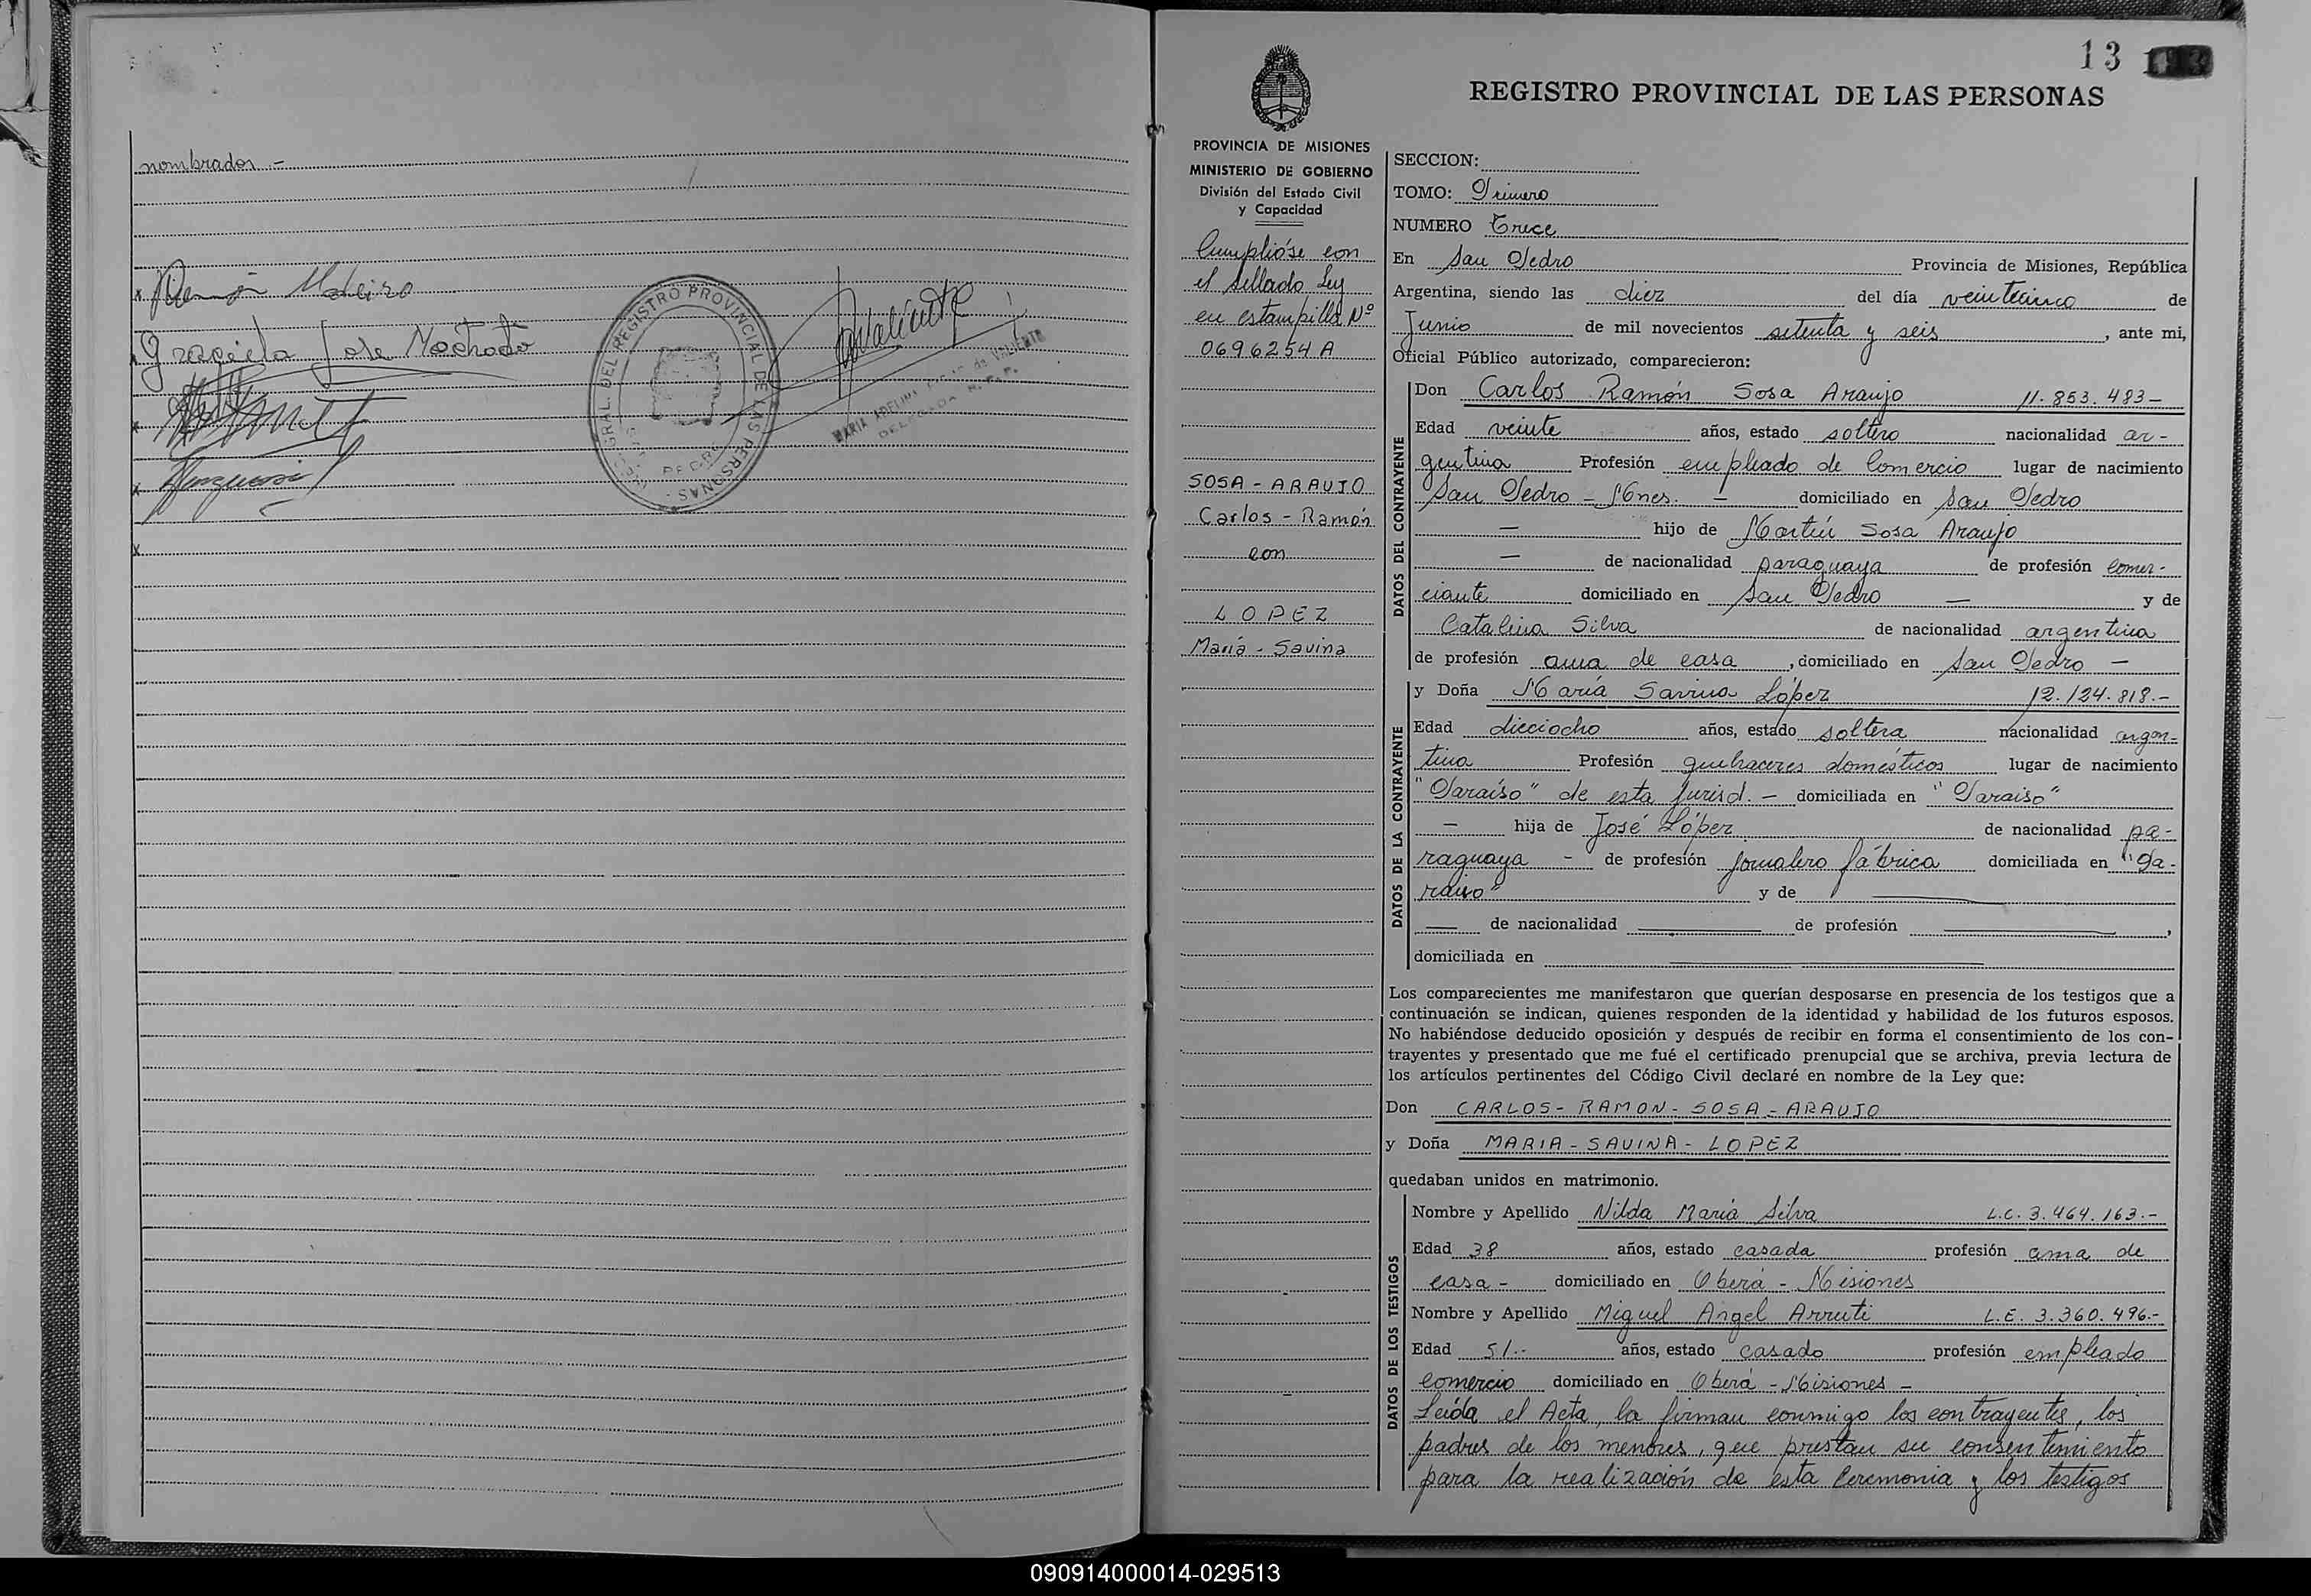 nombrados.-
Graciela Jose Machado
REGISTRO PROVINCIAL DE LAS PERSONAS
SAN PEDRO
MARIA ADELINA de VALIENTE
DELEGADA R. P. P.
13
REGISTRO PROVINCIAL DE LAS PERSONAS
PROVINCIA DE MISIONES
MINISTERIO DE GOBIERNO
División del Estado Civil
y Capacidad
Cumplióse con
el sellado Ley
en estampilla Nº
0696254 A
SOSA - ARAUJO
Carlos - Ramón
con
LOPEZ
María - Savina
SECCION:
TOMO: Primero
NUMERO Trece
En San Pedro Provincia de Misiones, República
Argentina, siendo las diez del día veinticinco de
Junio de mil novecientos setenta y seis, ante mi,
Oficial Público autorizado, comparecieron:
DATOS DEL CONTRAYENTE
Don Carlos Ramón Sosa Araujo 11.853.483-
Edad veinte años, estado soltero nacionalidad ar-
gentina Profesión empleado de Comercio lugar de nacimiento
San Pedro - Mnes. - domiciliado en San Pedro
- hijo de Martín Sosa Araujo
- de nacionalidad paraguaya de profesión comer-
ciante domiciliado en San Pedro - y de
Catalina Silva de nacionalidad argentina
de profesión ama de casa, domiciliado en San Pedro -
DATOS DE LA CONTRAYENTE
y Doña María Savina López 12.124.818.-
Edad dieciocho años, estado soltera nacionalidad argen-
tina Profesión quehaceres domésticos lugar de nacimiento
"Paraíso" de esta Jurisd. - domiciliada en "Paraiso"
- hija de José López de nacionalidad pa-
raguaya - de profesión jornalero fábrica domiciliada en "Pa-
raiso" y de —
— de nacionalidad — de profesión —,
domiciliada en —
Los comparecientes me manifestaron que querían desposarse en presencia de los testigos que a
continuación se indican, quienes responden de la identidad y habilidad de los futuros esposos.
No habiéndose deducido oposición y después de recibir en forma el consentimiento de los con-
trayentes y presentado que me fué el certificado prenupcial que se archiva, previa lectura de
los artículos pertinentes del Código Civil declaré en nombre de la Ley que:
Don CARLOS - RAMON - SOSA - ARAUJO
y Doña MARIA - SAVINA - LOPEZ
quedaban unidos en matrimonio.
DATOS DE LOS TESTIGOS
Nombre y Apellido Nilda María Silva L.C. 3.464.163.-
Edad 38 años, estado casada profesión ama de
casa - domiciliado en Oberá - Misiones
Nombre y Apellido Miguel Angel Arruti L.E. 3.360.496.-
Edad 51.- años, estado casado profesión empleado
comercio domiciliado en Oberá - Misiones -
Leída el Acta, la firman conmigo los contrayentes, los
padres de los menores, que prestan su consentimiento
para la realización de esta Ceremonia y los testigos
090914000014-029513